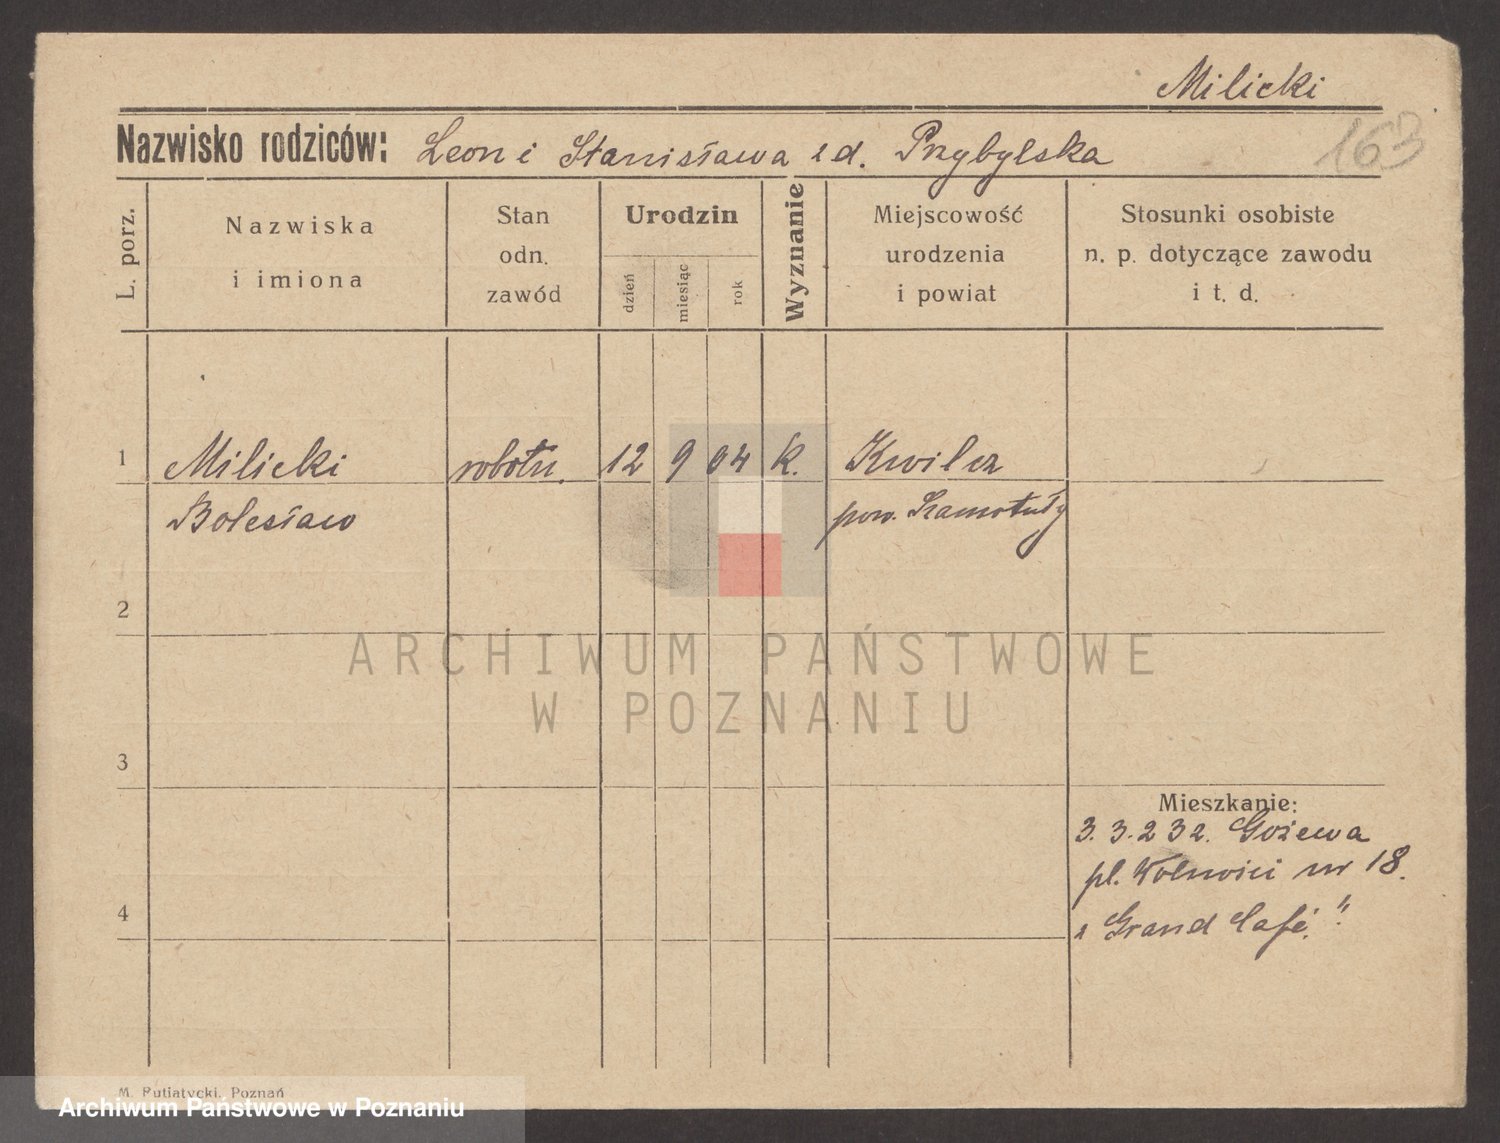 Milicki
Nazwisko rodziców: Leon i Stanisława z d. Przybylska
163
L. porz.
Nazwiska
i imiona
Stan
odn.
zawód
Urodzin
dzień
miesiąc
rok
Wyznanie
Miejscowość
urodzenia
i powiat
Stosunki osobiste
n. p. dotyczące zawodu
i t. d.
1 Milicki robotn. 12 9 04 k. Kwilcz
Bolesław pow. Szamotuły
2
ARCHIWUM PAŃSTWOWE
W POZNANIU
3
Mieszkanie:
3. 3. 232.
pl. Wolności nr 18.
4
„Grand Café."
M. Putiatycki, Poznań
Archiwum Państwowe w Poznaniu